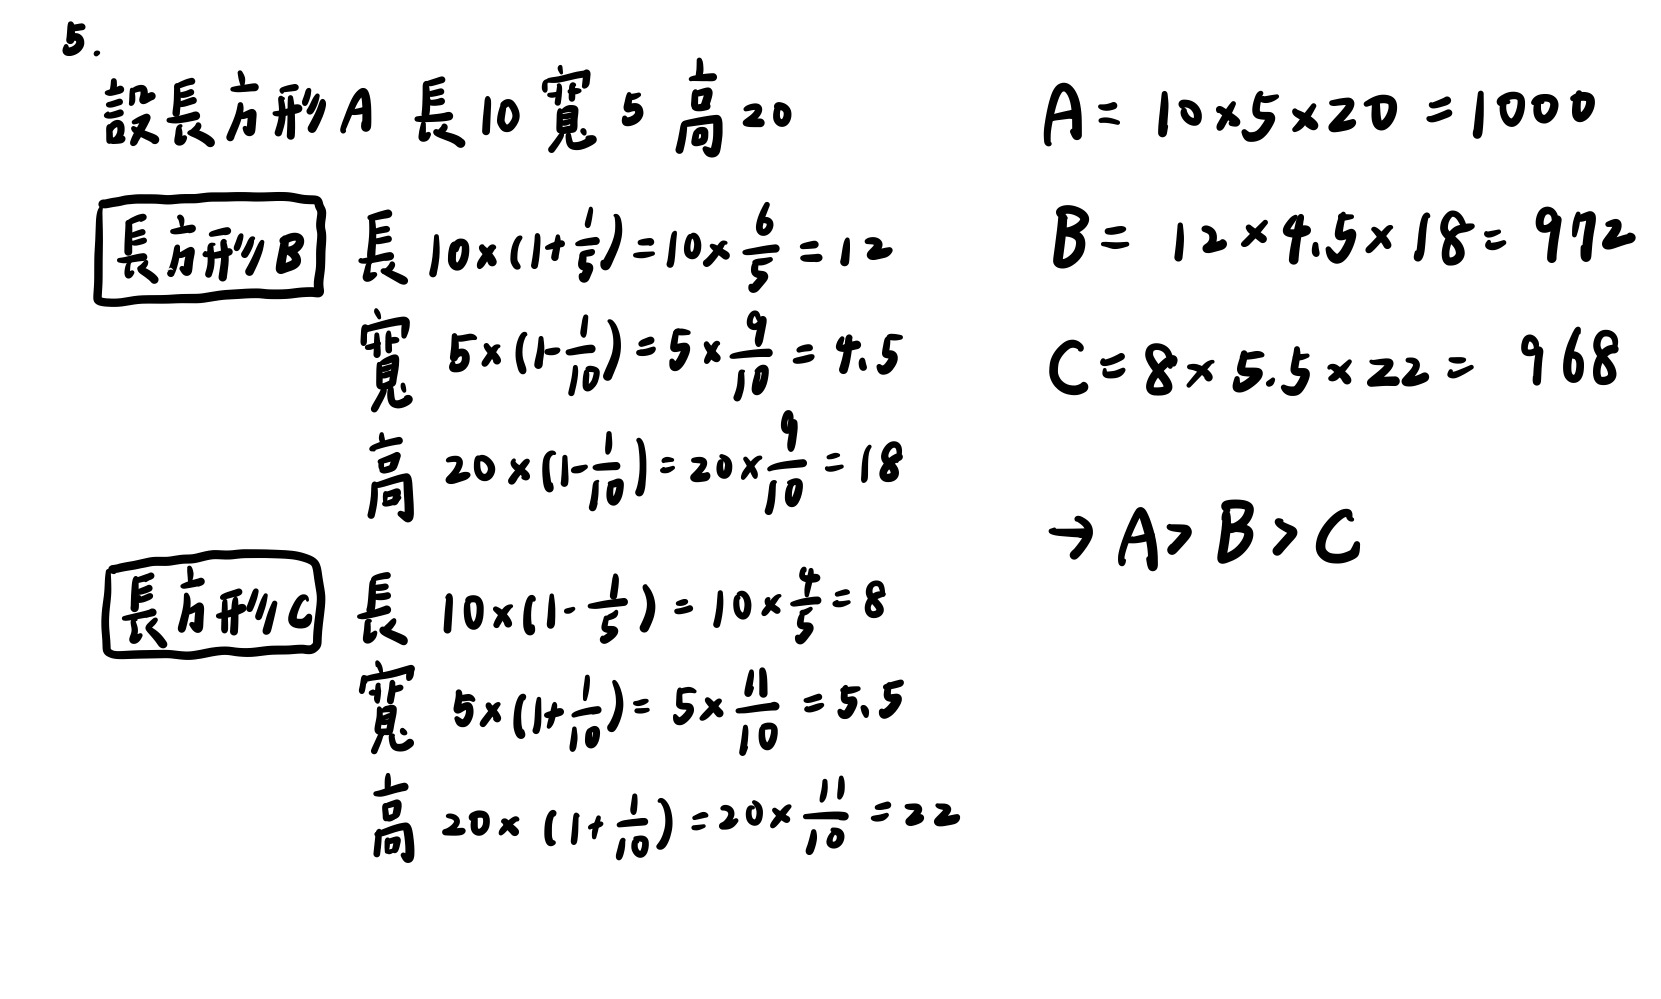 5.
設長方形A 長10 寬5 高20
長方形B 長 10×(1+1/5)=10×6/5=12
寬 5×(1-1/10)=5×9/10=4.5
高 20×(1-1/10)=20×9/10=18
長方形C 長 10×(1-1/5)=10×4/5=8
寬 5×(1+1/10)=5×11/10=5.5
高 20×(1+1/10)=20×11/10=22
A=10×5×20=1000
B=12×4.5×18=972
C=8×5.5×22=968
→A>B>C